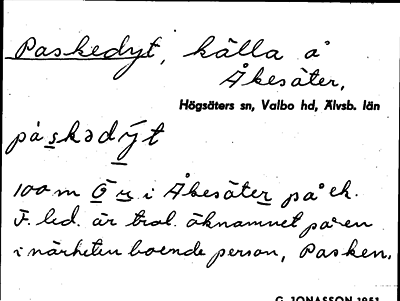 Paskedyt, källa å
Åkesäter,
Högsäters sn, Valbo hd, Älvsb. län
påskədȳt
100 m Ö u i Åkesäter på ek.
F. led. är trol. öknamnet på en
i närheten boende person, Pasken.
G. JONASSON 1951